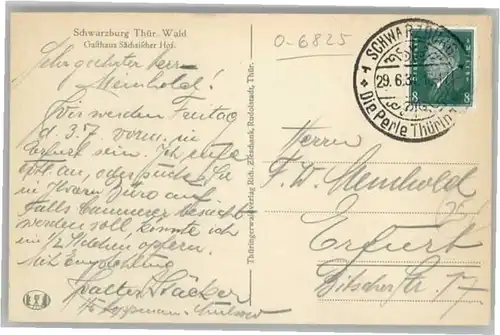 Schwarzburg Thür. Wald
Gasthaus Sächsischer Hof.
O-6825
Sehr geehrter Herr
Meinhold!
Wir werden Freitag
d. 3.7. vorm. in
Erfurt sein. Ich rufe
evtl. an, oder suche Sie
in Ihrem Büro auf.
Falls besucht
werden soll, könnte ich
ein 1/2 Stdchen opfern.
Mit Empfehlung
Walter Stäcker
Thüringerwald-Verlag Rich. Zieschank, Rudolstadt, Thür.
SCHWARZBURG
29.6.3
Die Perle Thürin
8 8
Herrn
F. W. Meinhold
Erfurt
Str. 17